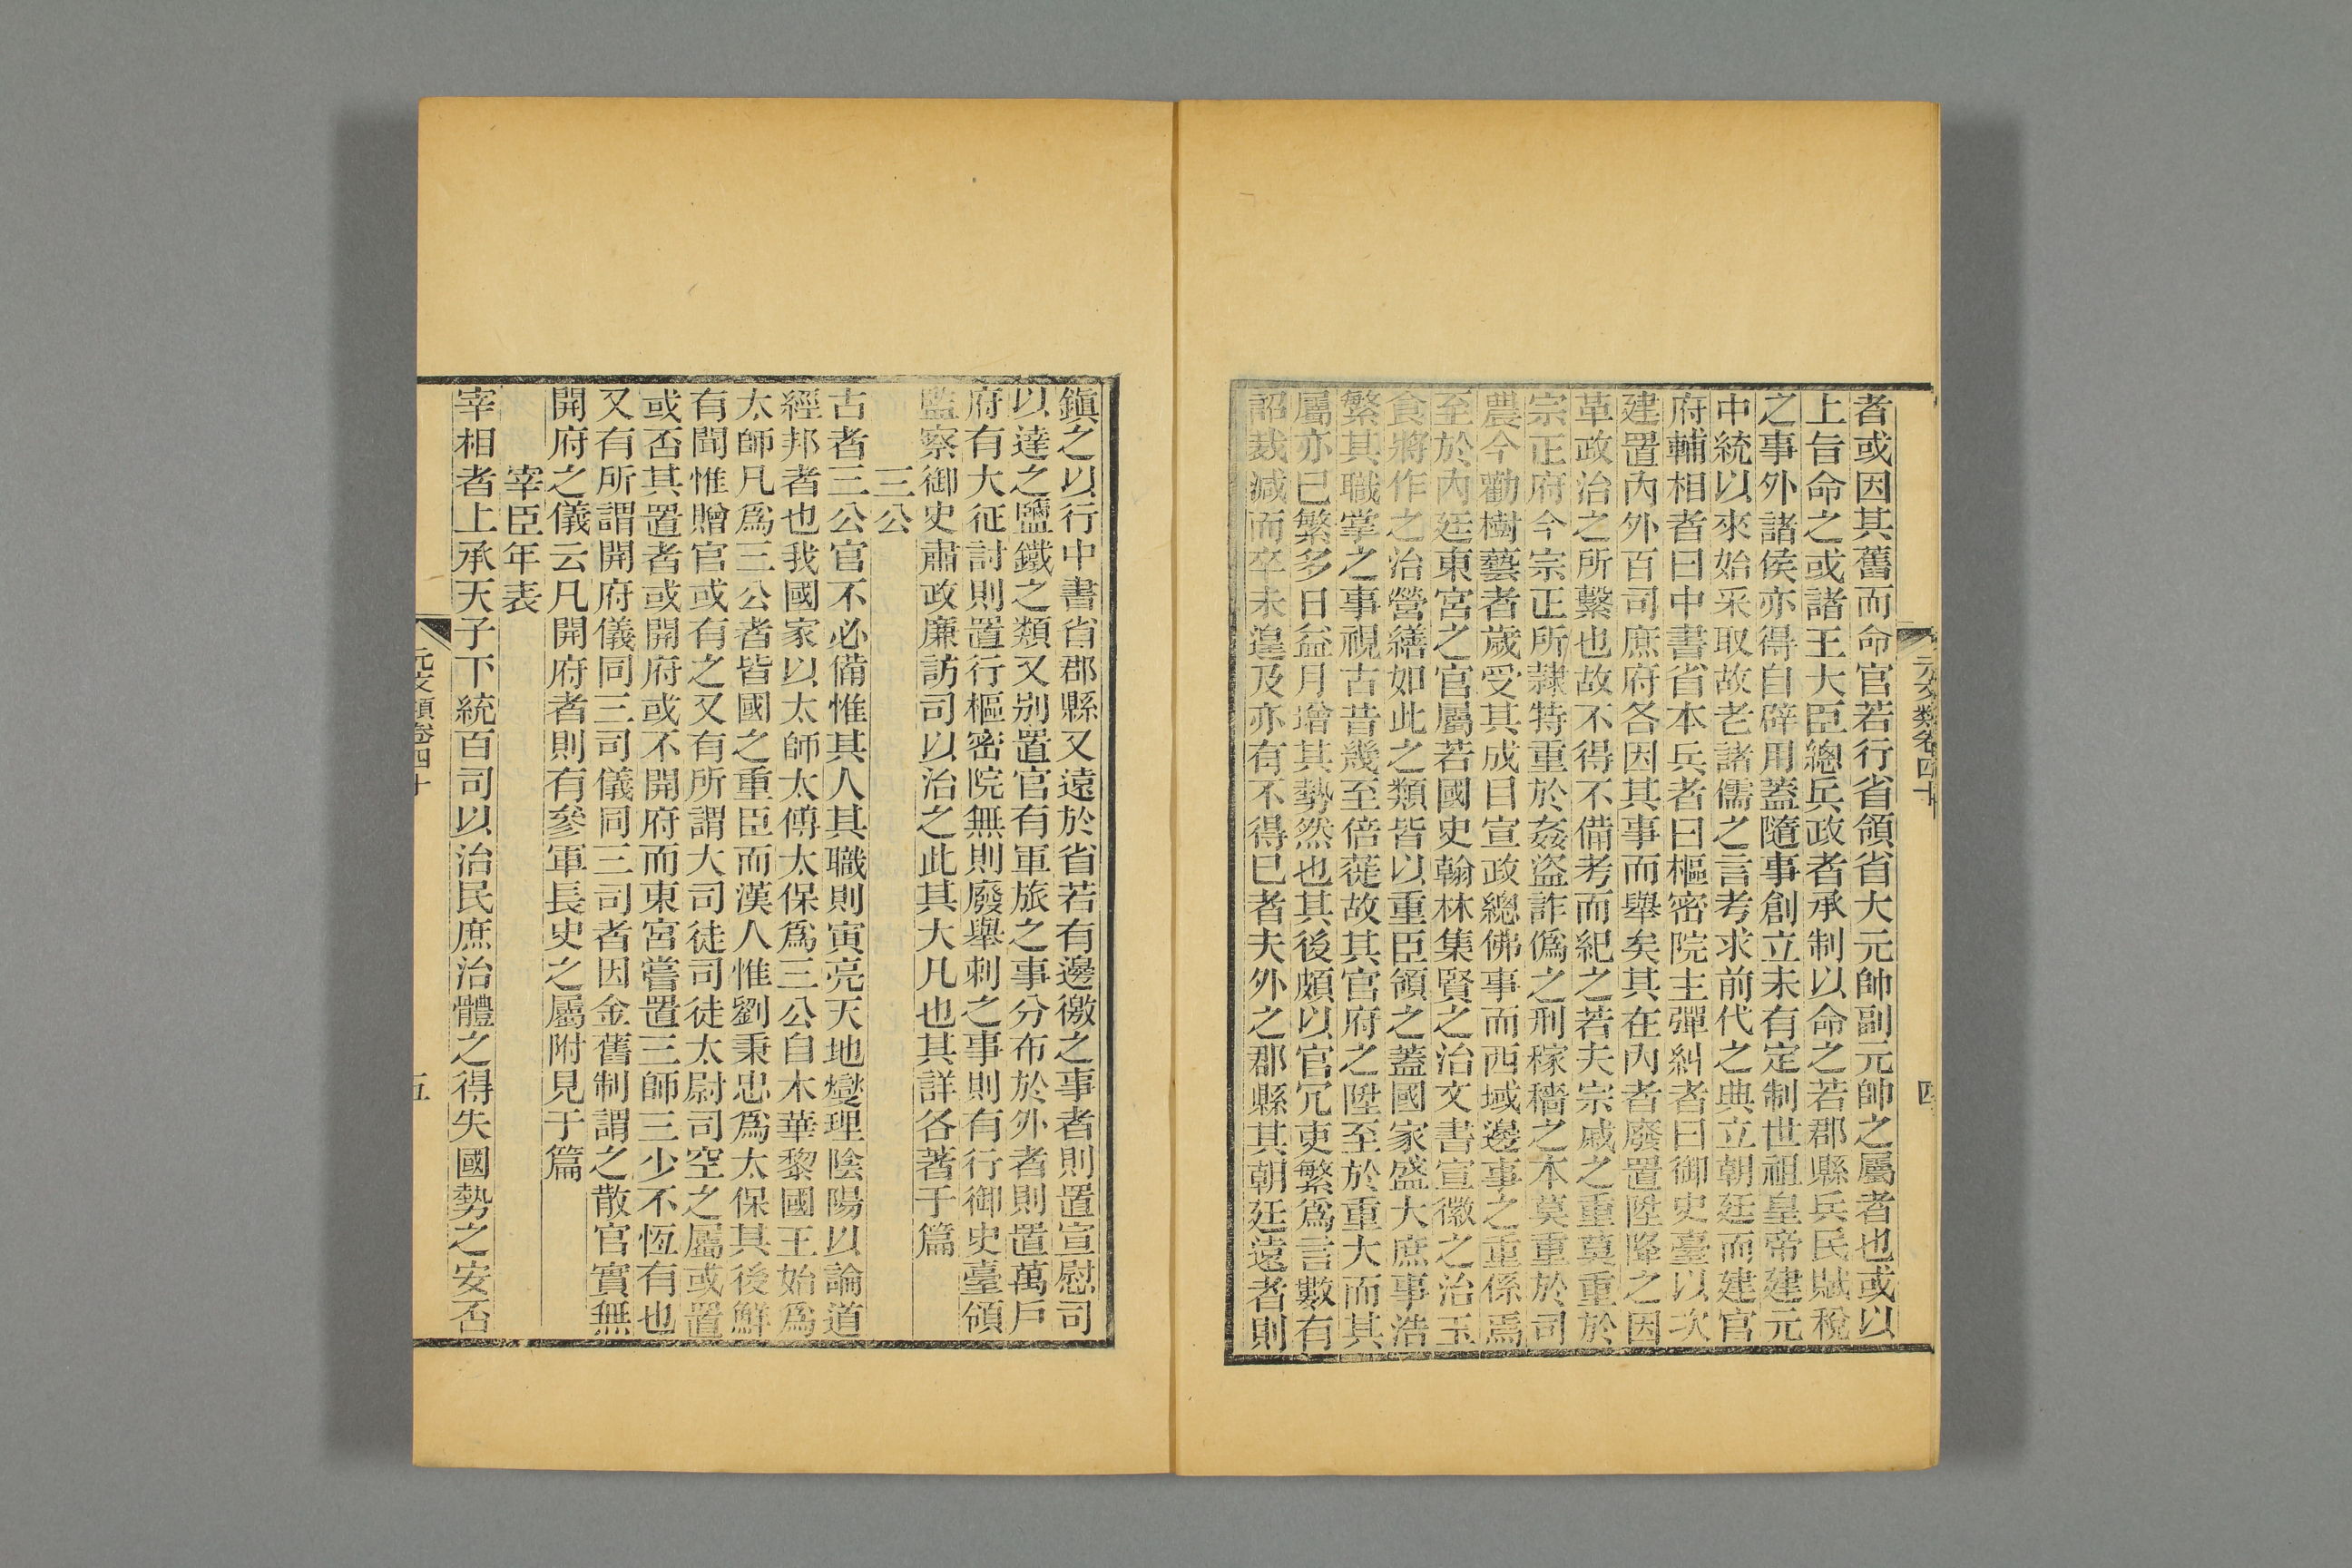 元文類卷四十
四
者或因其舊而命官若行省領省大元帥副元帥之屬者也或以
上旨命之或諸王大臣總兵政者承制以命之若郡縣兵民賦稅
之事外諸侯亦得自辟用蓋隨事創立未有定制世祖皇帝建元
中統以來始采取故老諸儒之言考求前代之典立朝廷而建官
府輔相者曰中書省本兵者曰樞密院主彈糾者曰御史臺以次
建置內外百司庶府各因其事而舉矣其在內者廢置陞降之因
革政治之所繫也故不得不備考而紀之若夫宗戚之重莫重於
宗正府今宗正所隸特重於姦盜詐僞之刑稼穡之本莫重於司
農今勸樹藝者歲受其成目宣政總佛事而西域邊事之重係焉
至於內廷東宮之官屬若國史翰林集賢之治文書宣徽之治玉
食將作之治營繕如此之類皆以重臣領之蓋國家盛大庶事浩
繁其職掌之事視古昔幾至倍蓰故其官府之陞至於重大而其
屬亦已繁多日益月增其勢然也其後頗以官冗吏繁爲言數有
詔裁減而卒未遑及亦有不得已者夫外之郡縣其朝廷遠者則
鎭之以行中書省郡縣又遠於省若有邊徼之事者則置宣慰司
以達之鹽鐵之類又別置官有軍旅之事分布於外者則置萬戶
府有大征討則置行樞密院無則廢舉刺之事則有行御史臺領
監察御史肅政廉訪司以治之此其大凡也其詳各著于篇
三公
古者三公官不必備惟其人其職則寅亮天地燮理陰陽以論道
經邦者也我國家以太師太傅太保爲三公自木華黎國王始爲
太師凡爲三公者皆國之重臣而漢人惟劉秉忠爲太保其後鮮
有聞惟贈官或有之又有所謂大司徒司徒太尉司空之屬或置
或否其置者或開府或不開府而東宮嘗置三師三少不恆有也
又有所謂開府儀同三司儀同三司者因金舊制謂之散官實無
開府之儀云凡開府者則有參軍長史之屬附見于篇
宰臣年表
宰相者上承天子下統百司以治民庶治體之得失國勢之安否
元文類卷四十
五